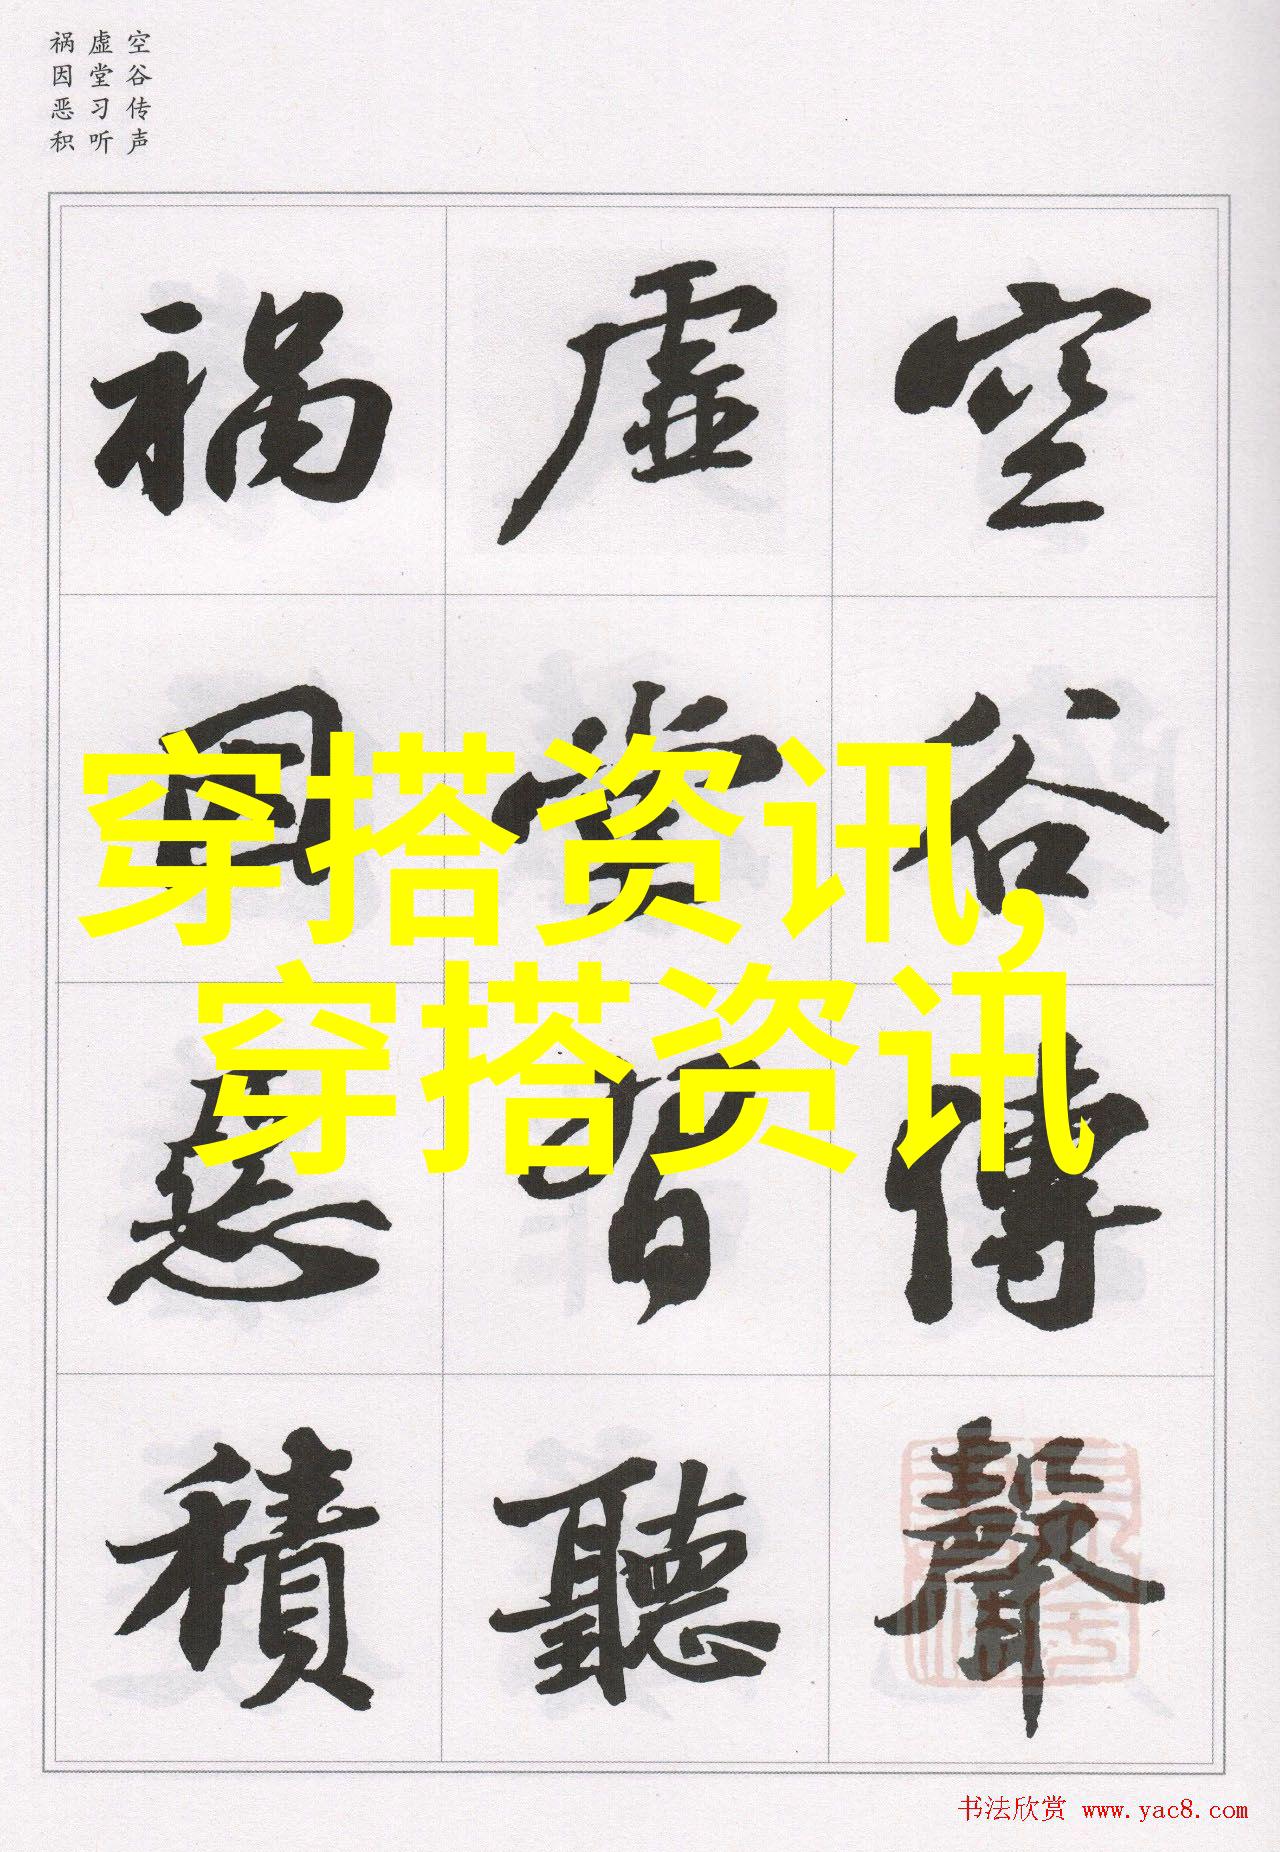 空谷传声
虚堂习听
祸因恶积
空谷傳聲
虚堂習聽
禍因惡積
穿搭资讯,
穿搭资讯
书法欣赏 www.yac8.com